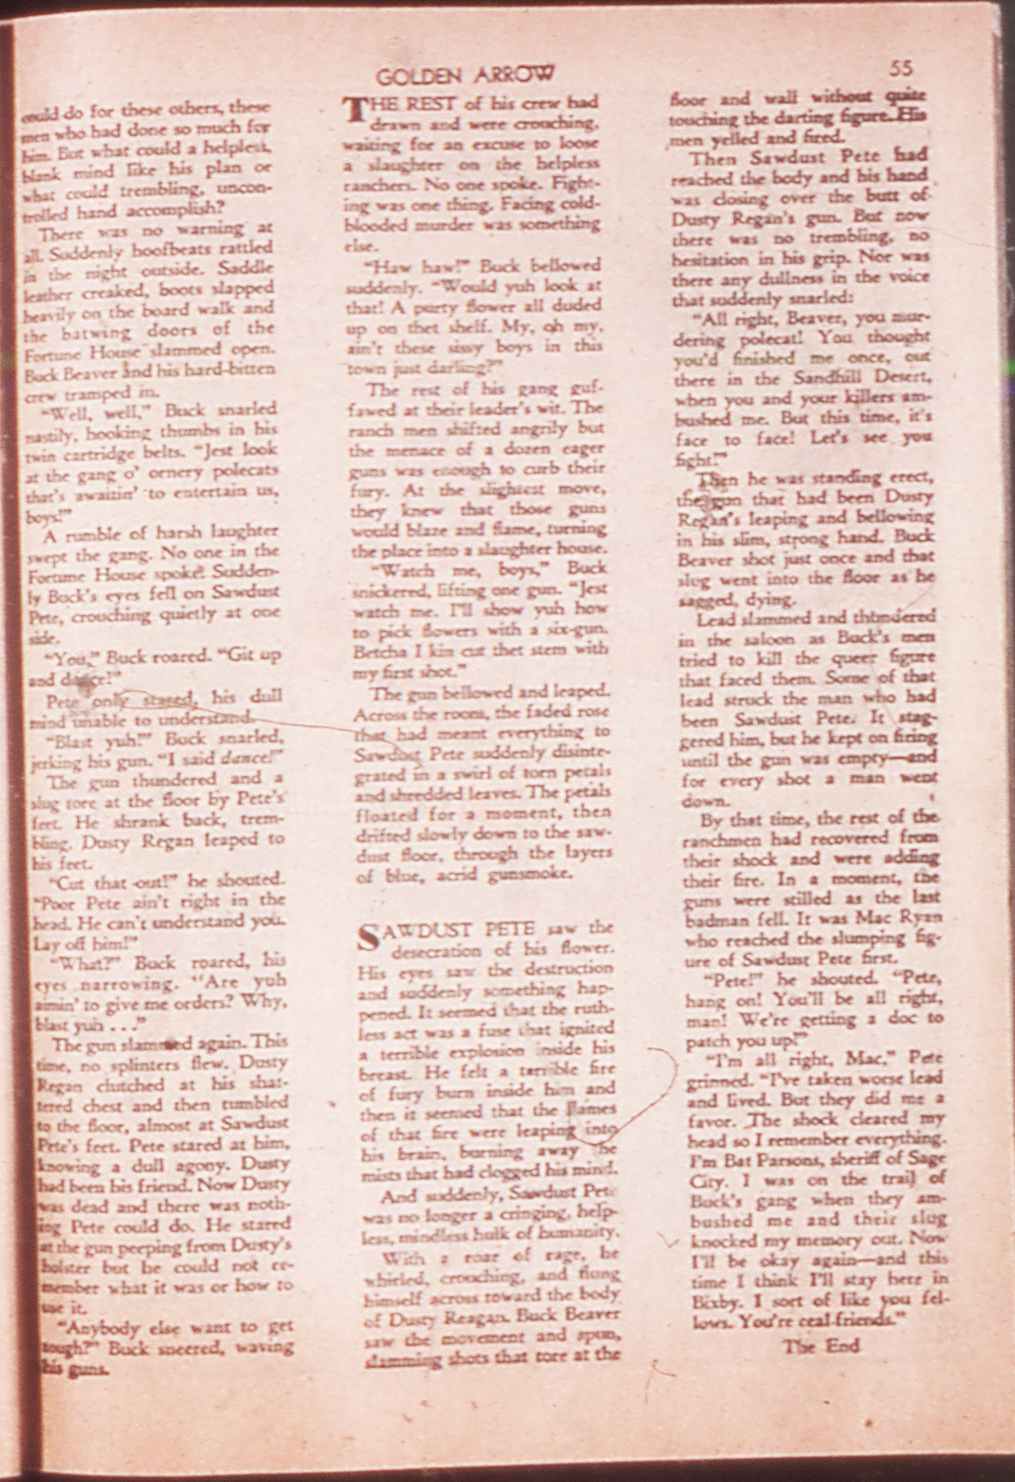 GOLDEN ARROW
55
could do for these others, these
men who had done so much for
him. But what could a helpless,
blank mind like his plan or
what could trembling, uncon-
trolled hand accomplish?
There was no warning at
all. Suddenly hoofbeats rattled
in the night outside. Saddle
leather creaked, boots slapped
heavily on the board walk and
the batwing doors of the
Fortune House slammed open.
Buck Beaver and his hard-bitten
crew tramped in.
"Well, well," Buck snarled
nastily, hooking thumbs in his
twin cartridge belts. "Jest look
at the gang o' ornery polecats
that's awaitin' to entertain us,
boys!"
A rumble of harsh laughter
swept the gang. No one in the
Fortune House spoke. Sudden-
ly Buck's eyes fell on Sawdust
Pete, crouching quietly at one
side.
"You," Buck roared. "Git up
and dance!"
Pete only stared, his dull
mind unable to understand.
"Blast yuh!" Buck snarled,
jerking his gun. "I said dance!"
The gun thundered and a
slug tore at the floor by Pete's
feet. He shrank back, trem-
bling. Dusty Regan leaped to
his feet.
"Cut that out!" he shouted.
"Poor Pete ain't right in the
head. He can't understand you.
Lay off him!"
"What?" Buck roared, his
eyes narrowing. "Are yuh
aimin' to give me orders? Why,
blast yuh . . ."
The gun slammed again. This
time, no splinters flew. Dusty
Regan clutched at his shat-
tered chest and then tumbled
to the floor, almost at Sawdust
Pete's feet. Pete stared at him,
knowing a dull agony. Dusty
had been his friend. Now Dusty
was dead and there was noth-
ing Pete could do. He stared
at the gun peeping from Dusty's
holster but he could not re-
member what it was or how to
use it.
"Anybody else want to get
tough?" Buck sneered, waving
his guns.
THE REST of his crew had
drawn and were crouching,
waiting for an excuse to loose
a slaughter on the helpless
ranchers. No one spoke. Fight-
ing was one thing. Facing cold-
blooded murder was something
else.
"Haw haw!" Buck bellowed
suddenly. "Would yuh look at
that! A purty flower all duded
up on thet shelf. My, oh my,
ain't these sissy boys in this
town just darling?"
The rest of his gang guf-
fawed at their leader's wit. The
ranch men shifted angrily but
the menace of a dozen eager
guns was enough to curb their
fury. At the slightest move,
they knew that those guns
would blaze and flame, turning
the place into a slaughter house.
"Watch me, boys," Buck
snickered, lifting one gun. "Jest
watch me. I'll show yuh how
to pick flowers with a six-gun.
Betcha I kin cut thet stem with
my first shot."
The gun bellowed and leaped.
Across the room, the faded rose
that had meant everything to
Sawdust Pete suddenly disinte-
grated in a swirl of torn petals
and shredded leaves. The petals
floated for a moment, then
drifted slowly down to the saw-
dust floor, through the layers
of blue, acrid gunsmoke.
SAWDUST PETE saw the
desecration of his flower.
His eyes saw the destruction
and suddenly something hap-
pened. It seemed that the ruth-
less act was a fuse that ignited
a terrible explosion inside his
breast. He felt a terrible fire
of fury burn inside him and
then it seemed that the flames
of that fire were leaping into
his brain, burning away the
mists that had clogged his mind.
And suddenly, Sawdust Pete
was no longer a cringing, help-
less, mindless hulk of humanity.
With a roar of rage, he
whirled, crouching, and flung
himself across toward the body
of Dusty Reagan. Buck Beaver
saw the movement and spun,
slamming shots that tore at the
floor and wall without quite
touching the darting figure. His
men yelled and fired.
Then Sawdust Pete had
reached the body and his hand
was closing over the butt of
Dusty Regan's gun. But now
there was no trembling, no
hesitation in his grip. Nor was
there any dullness in the voice
that suddenly snarled:
"All right, Beaver, you mur-
dering polecat! You thought
you'd finished me once, out
there in the Sandhill Desert,
when you and your killers am-
bushed me. But this time, it's
face to face! Let's see you
fight!"
Then he was standing erect,
the gun that had been Dusty
Regan's leaping and bellowing
in his slim, strong hand. Buck
Beaver shot just once and that
slug went into the floor as he
sagged, dying.
Lead slammed and thundered
in the saloon as Buck's men
tried to kill the queer figure
that faced them. Some of that
lead struck the man who had
been Sawdust Pete. It stag-
gered him, but he kept on firing
until the gun was empty—and
for every shot a man went
down.
By that time, the rest of the
ranchmen had recovered from
their shock and were adding
their fire. In a moment, the
guns were stilled as the last
badman fell. It was Mac Ryan
who reached the slumping fig-
ure of Sawdust Pete first.
"Pete!" he shouted. "Pete,
hang on! You'll be all right,
man! We're getting a doc to
patch you up!"
"I'm all right, Mac," Pete
grinned. "I've taken worse lead
and lived. But they did me a
favor. The shock cleared my
head so I remember everything.
I'm Bat Parsons, sheriff of Sage
City. I was on the trail of
Buck's gang when they am-
bushed me and their slug
knocked my memory out. Now
I'll be okay again—and this
time I think I'll stay here in
Bixby. I sort of like you fel-
lows. You're real friends."
The End